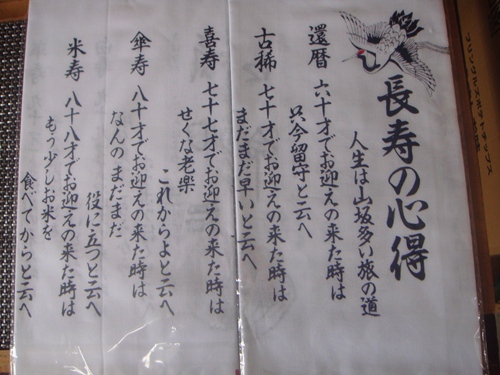 長寿の心得
人生は山坂多い旅の道
還暦 六十才でお迎えの来た時は
只今留守と云へ
古稀 七十才でお迎えの来た時は
まだまだ早いと云へ
喜寿 七十七才でお迎えの来た時は
せくな老楽
これからよと云へ
傘寿 八十才でお迎えの来た時は
なんのまだまだ
役に立つと云へ
米寿 八十八才でお迎えの来た時は
もう少しお米を
食べてからと云へ